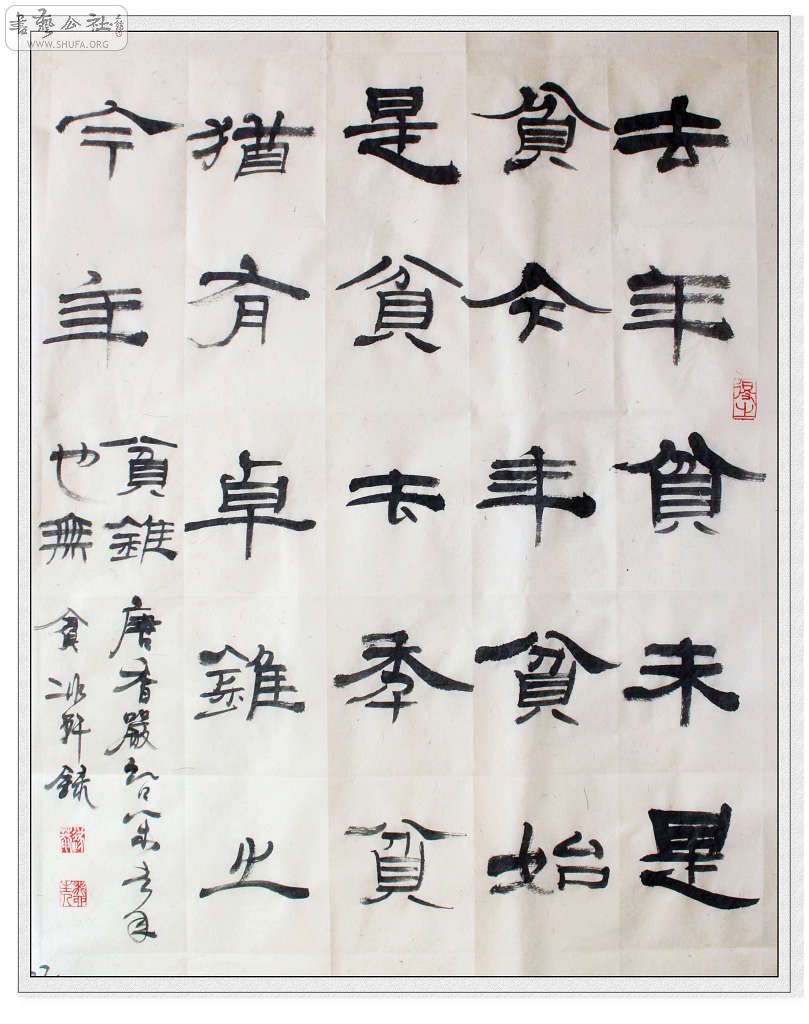 書藝公社
WWW.SHUFA.ORG
去年貧未是
貧今年貧始
是貧去秊貧
猶有卓錐之
今年貧錐
也無
唐香嚴